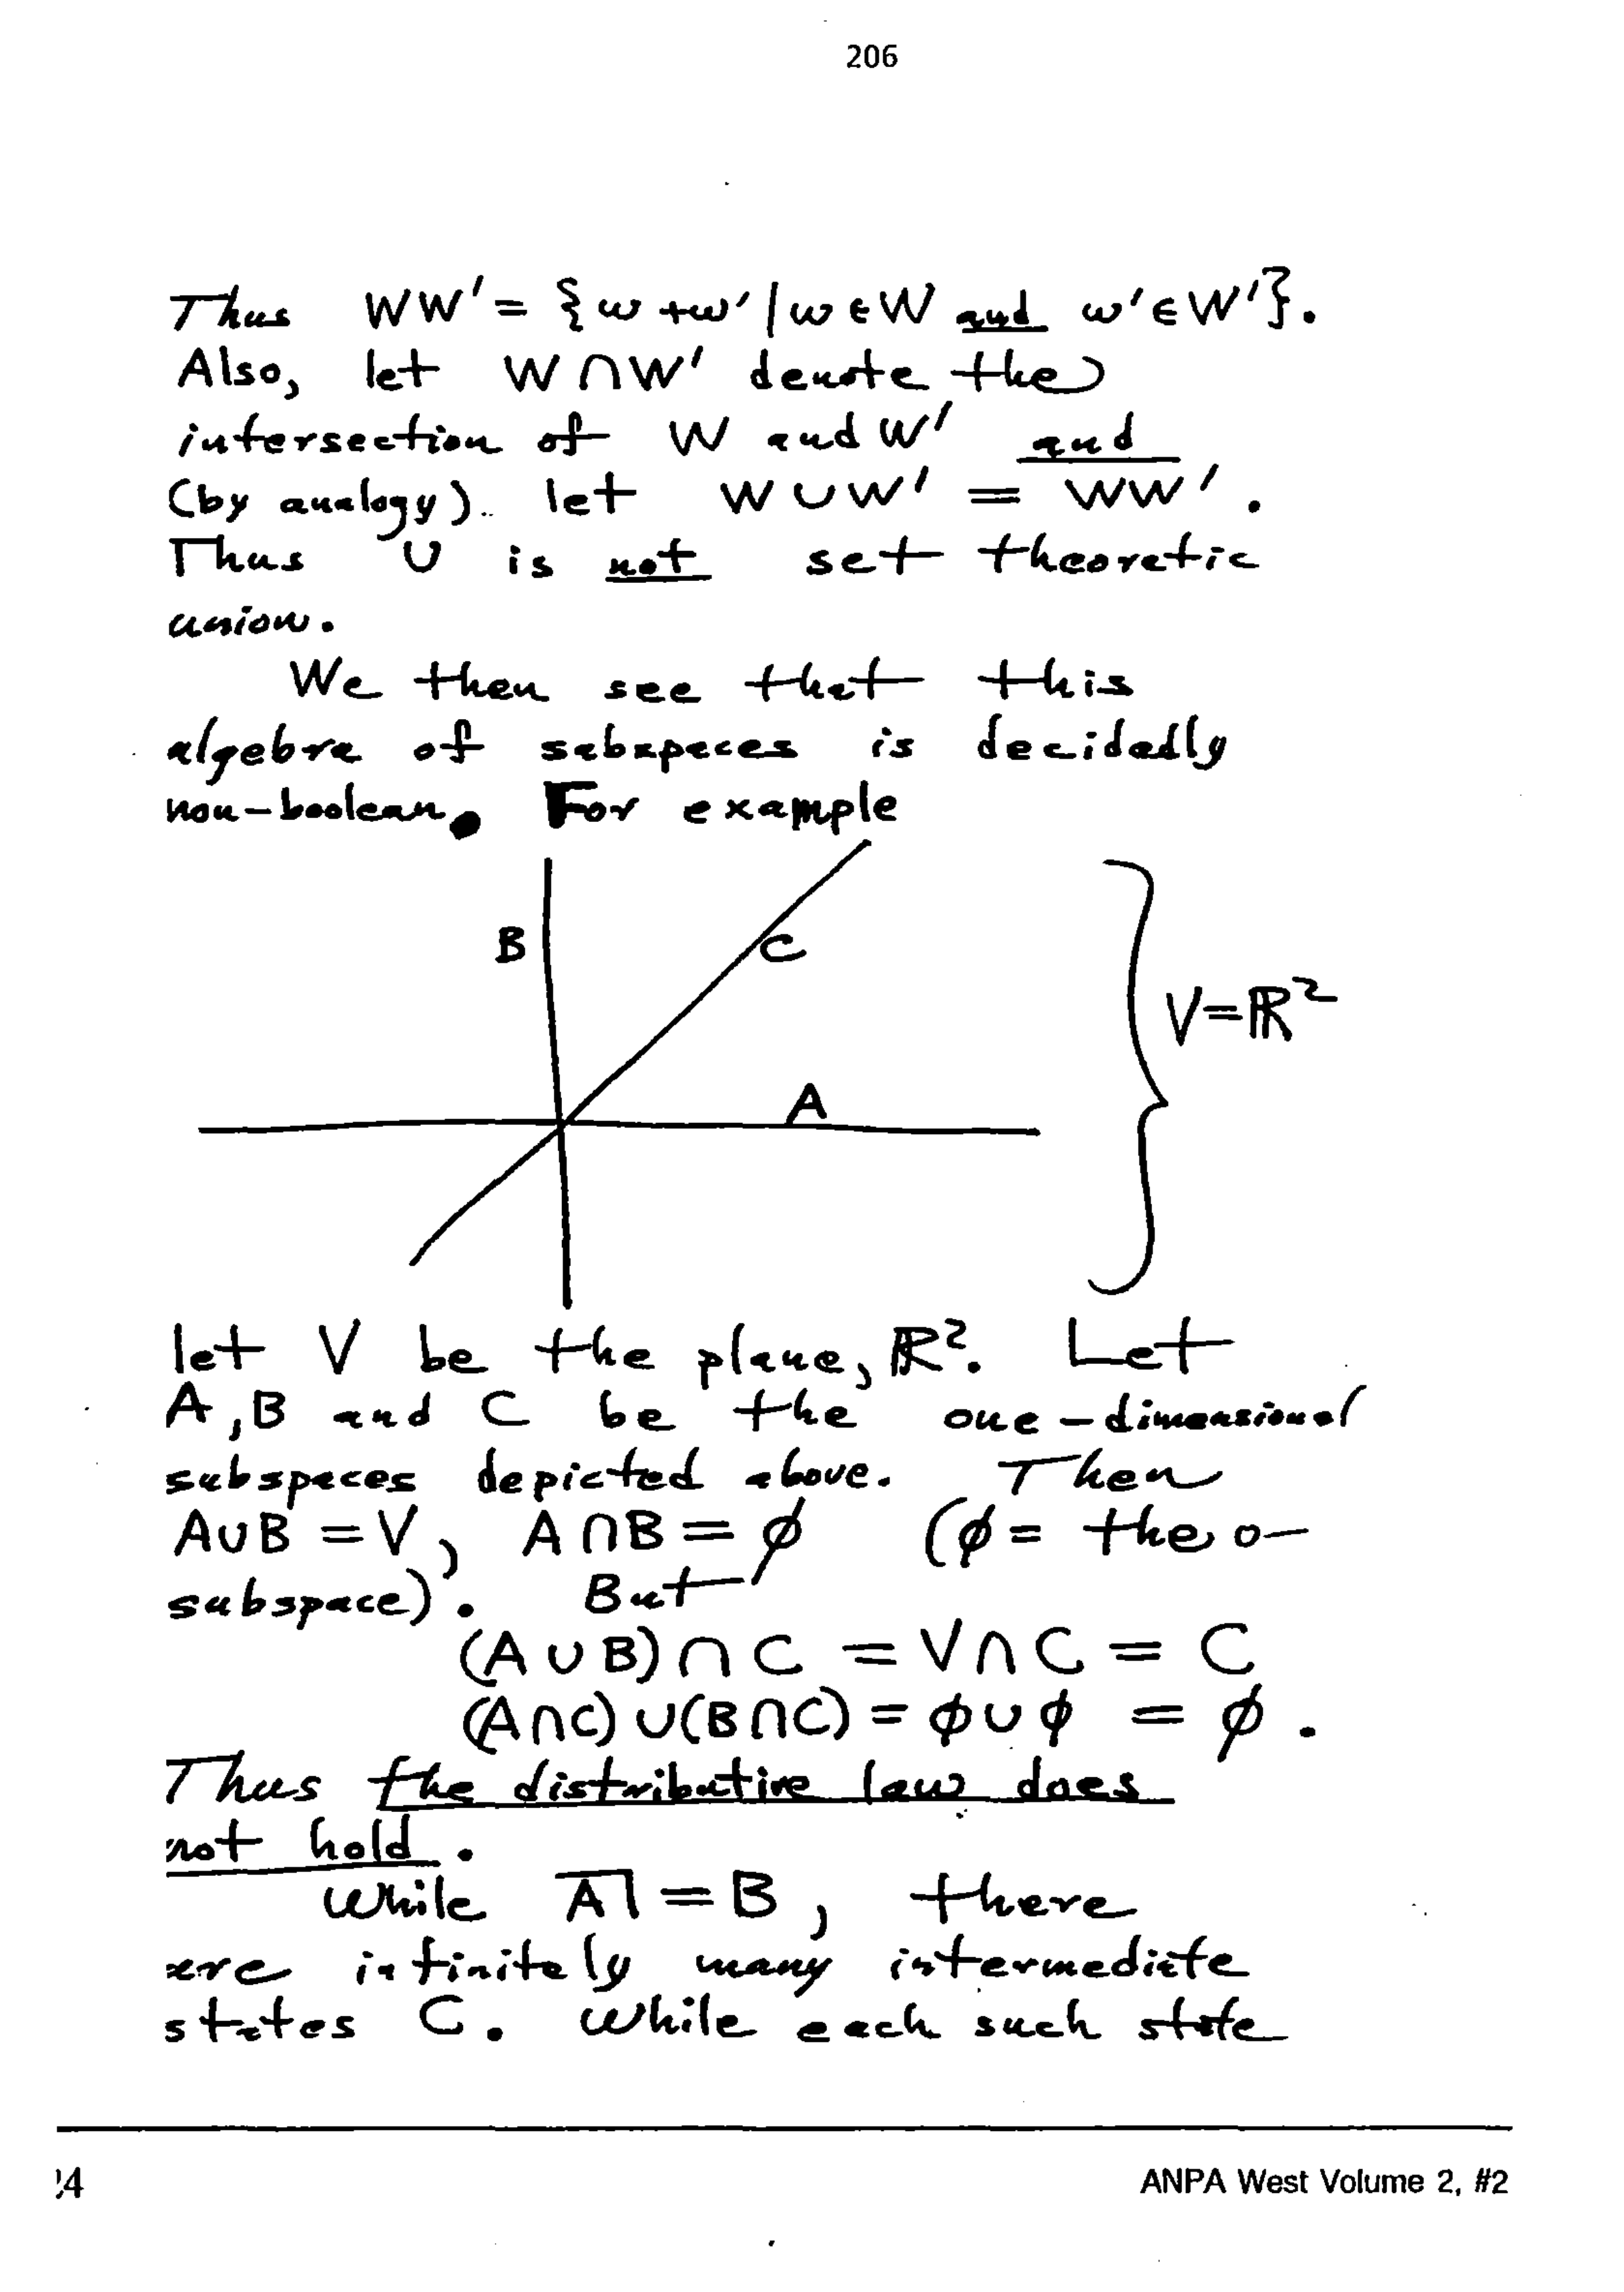 206
Thus WW' = {w+w' | w ∈ W and w' ∈ W'}.
Also, let W ∩ W' denote the
intersection of W and W' and
(by analogy) let W ∪ W' = WW'.
Thus ∪ is not set theoretic
union.
We then see that this
algebra of subspaces is decidedly
non-boolean. For example
B
C
V=ℝ²
A
let V be the plane, ℝ². Let
A, B and C be the one-dimensional
subspaces depicted above. Then
A∪B = V, A∩B = ϕ (ϕ = the 0-
subspace). But
(A ∪ B) ∩ C = V ∩ C = C
(A∩C) ∪ (B∩C) = ϕ ∪ ϕ = ϕ.
Thus the distributive law does
not hold.
While A̅| = B, there
are infinitely many intermediate
states C. While each such state
24
ANPA West Volume 2, #2